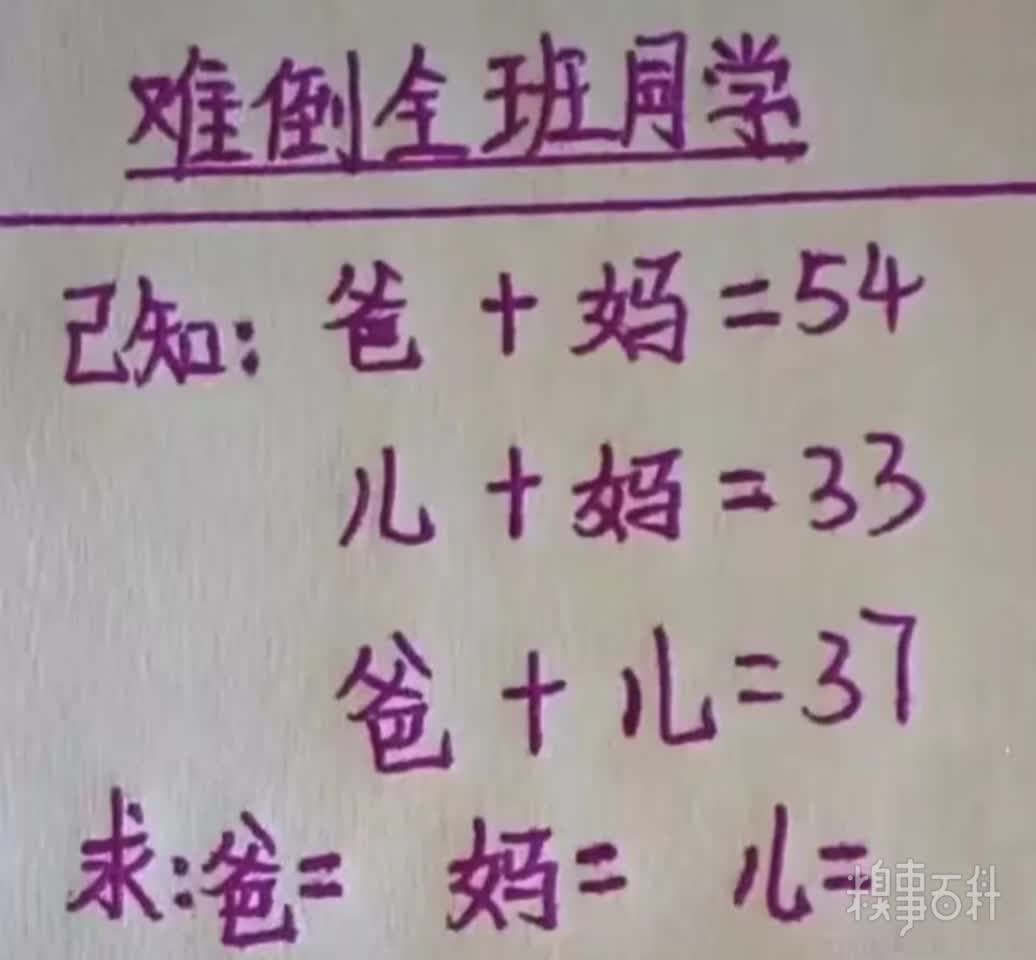 难倒全班同学
已知: 爸 + 妈 = 54
儿 + 妈 = 33
爸 + 儿 = 37
求: 爸= 妈= 儿=
糗事百科